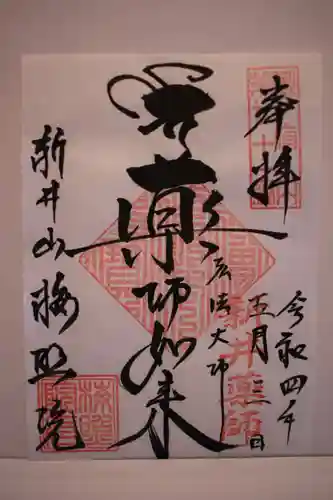 奉拝
令和四年
五月三日
弘法大師
薬師如来
新井山梅照院
新井薬師
梅照院